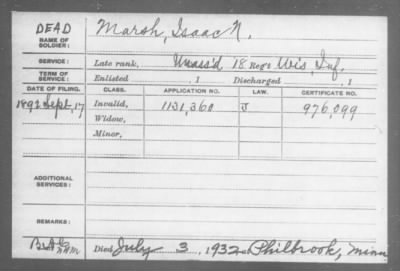 DEAD
NAME OF SOLDIER:
Marsh, Isaac N.
SERVICE:
Late rank, Unass'd 18 Regt Wis, Inf.
TERM OF SERVICE:
Enlisted , 1 Discharged , 1
DATE OF FILING. CLASS. APPLICATION NO. LAW. CERTIFICATE NO.
1892 Sept, 17 Invalid, 1131,360 J 976,099
Widow,
Minor,
ADDITIONAL SERVICES:
REMARKS:
Died July 3, 1932 Philbrook, Minn